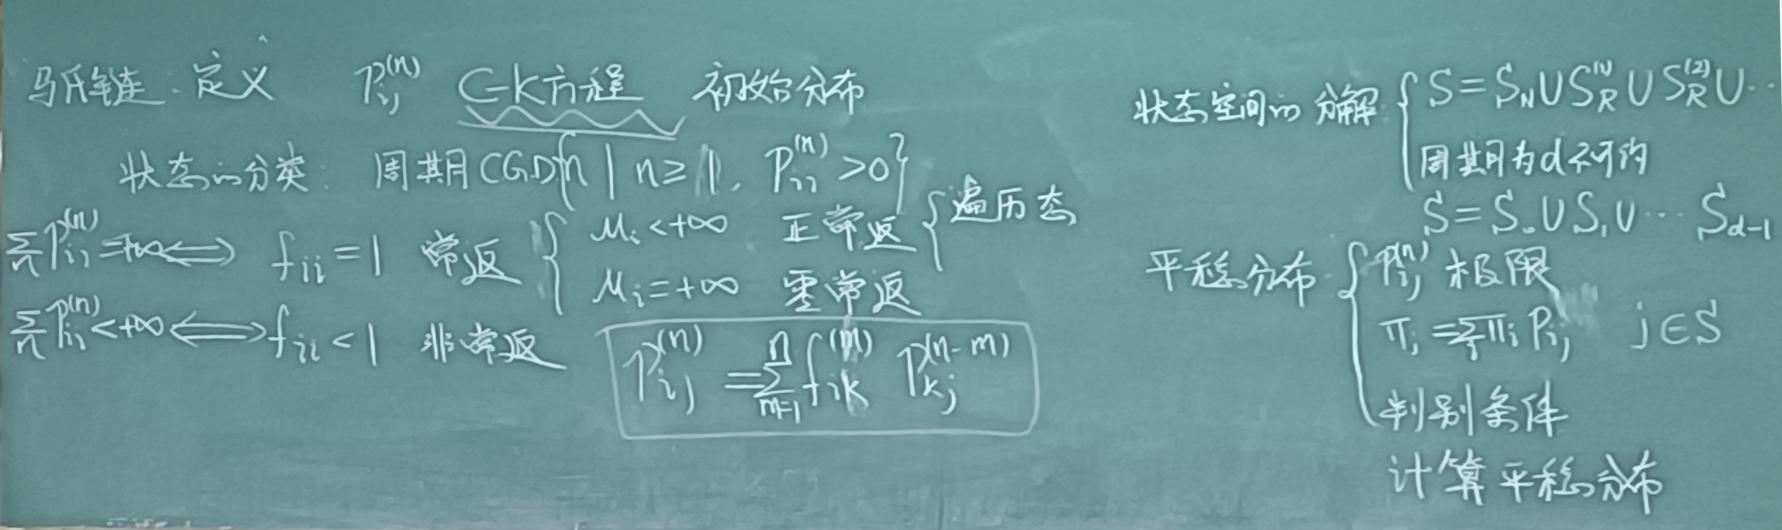 马氏链:定义 P_{ij}^{(n)} C-K方程 初始分布
状态的分类: 周期 CGD{n | n≥1, P_{ii}^{(n)}>0}
∑_n P_{ii}^{(n)}=+∞ ⟺ f_{ii}=1 常返 { μ_i<+∞ 正常返 { 遍历态
μ_i=+∞ 零常返
∑_n P_{ii}^{(n)}<+∞ ⟺ f_{ii}<1 非常返
P_{ij}^{(n)}=∑_{m=1}^{n} f_{ik}^{(m)} P_{kj}^{(n-m)}
状态空间的分解 { S=S_N∪S_R^{(1)}∪S_R^{(2)}∪…
周期为d不可约
S=S_0∪S_1∪…S_{d-1}
平稳分布 { P_{ij}^{(n)} 极限
π_j=∑_i π_i P_{ij} j∈S
判别条件
计算平稳分布